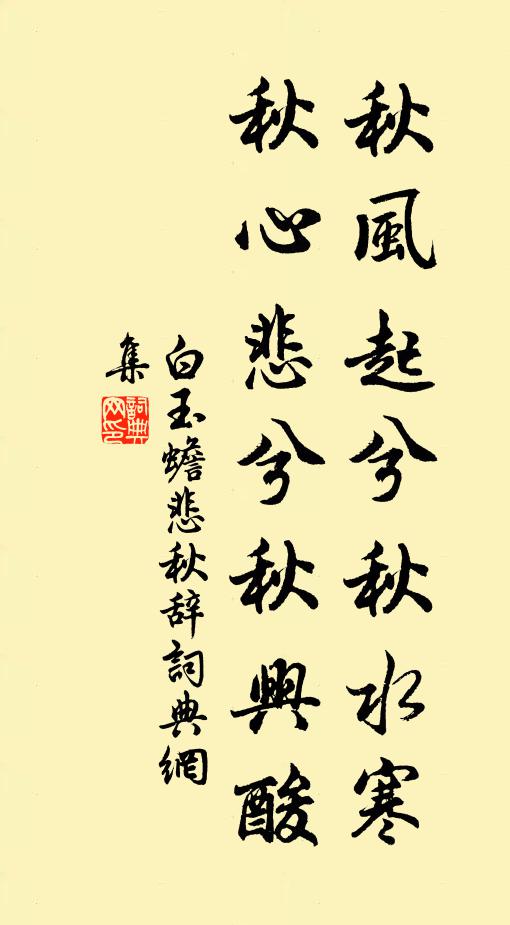 秋風起兮秋水寒
秋心悲兮秋興酸
白玉蟾悲秋辞詞典網
集
詞典
网印